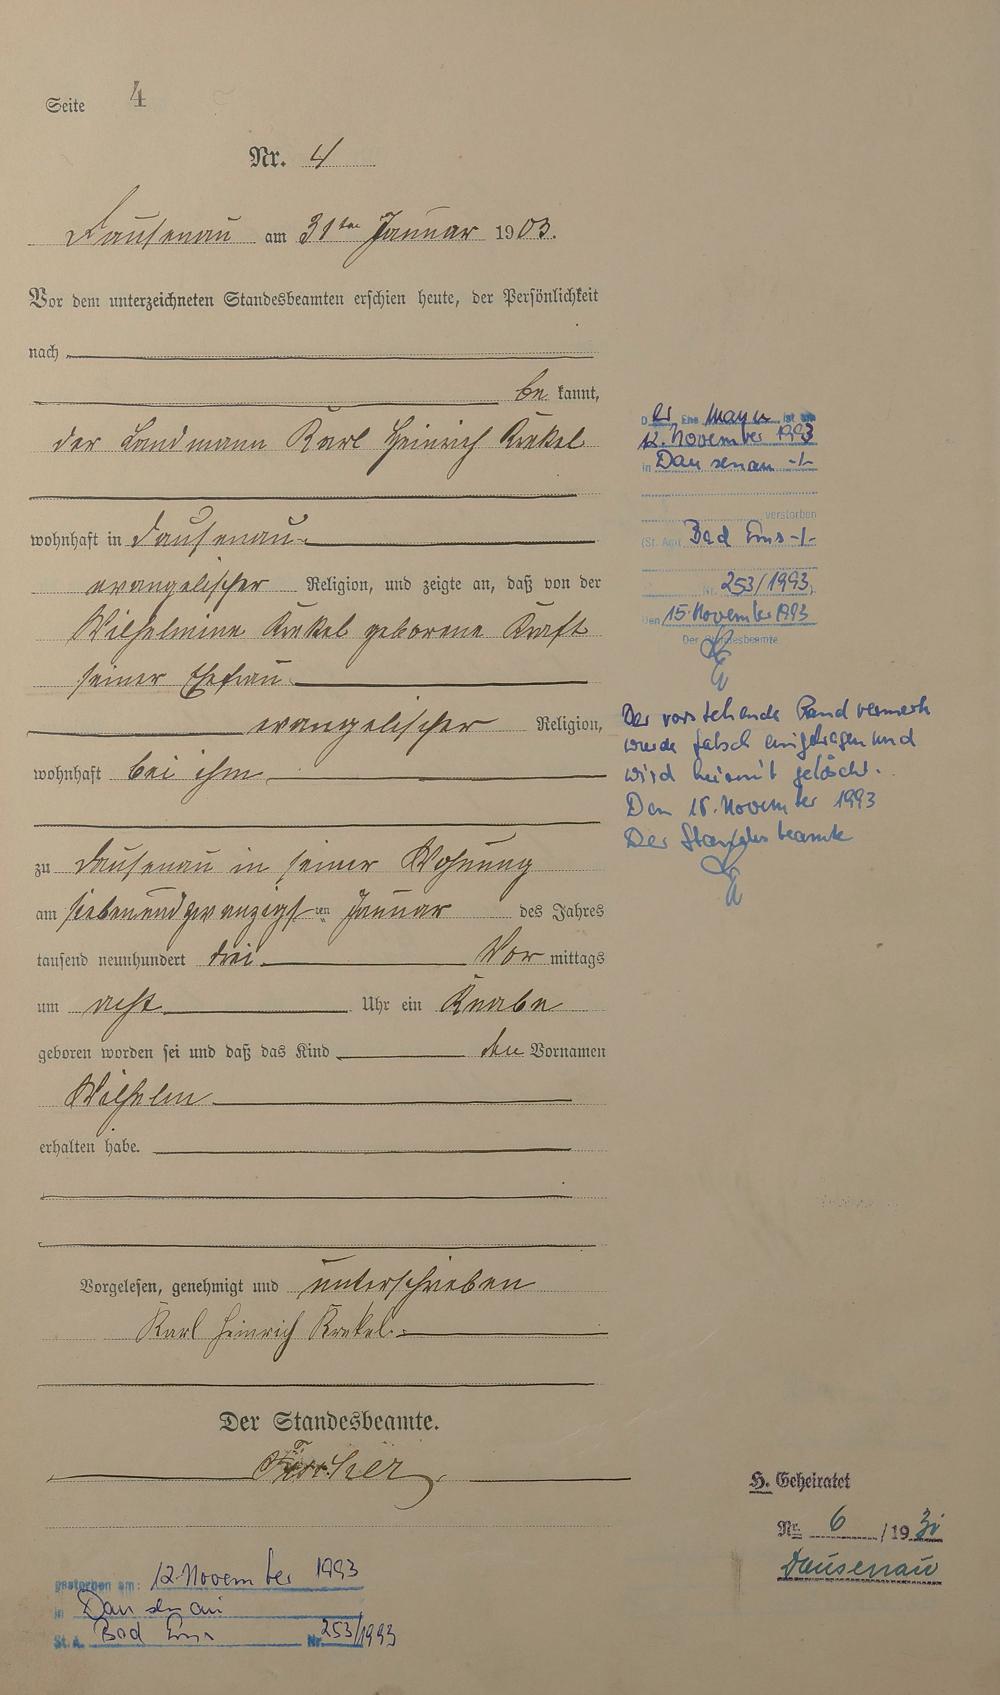 Seite 4
Nr. 4
Dausenau am 31ten Januar 1903.
Vor dem unterzeichneten Standesbeamten erschien heute, der Persönlichkeit
nach
be kannt,
der Landmann Karl Heinrich Krekel
wohnhaft in Dausenau
evangelischer Religion, und zeigte an, daß von der
Wilhelmine Krekel geborene Kraft
seiner Ehefrau
evangelischer Religion,
wohnhaft bei ihm
zu Dausenau in seiner Wohnung
am siebenundzwanzigsten Januar des Jahres
tausend neunhundert drei Vor mittags
um acht Uhr ein Knabe
geboren worden sei und daß das Kind den Vornamen
Wilhelm
erhalten habe.
Vorgelesen, genehmigt und unterschrieben
Karl Heinrich Krekel.
Der Standesbeamte.
gestorben am: 12. November 1993
in Dausenau
St. A. Bad Ems Nr. 253/1993
Der Ehe ist am
12. November 1993
in Dausenau -/-
verstorben
(St. Amt Bad Ems -/-
Nr. 253/1993)
Den 15. November 1993
Der Standesbeamte
Der vorstehende Randvermerk
wurde falsch eingetragen und
wird hiermit gelöscht.
Den 16. November 1993
Der Standesbeamte
H. Geheiratet
Nr. 6 /19 31
Dausenau